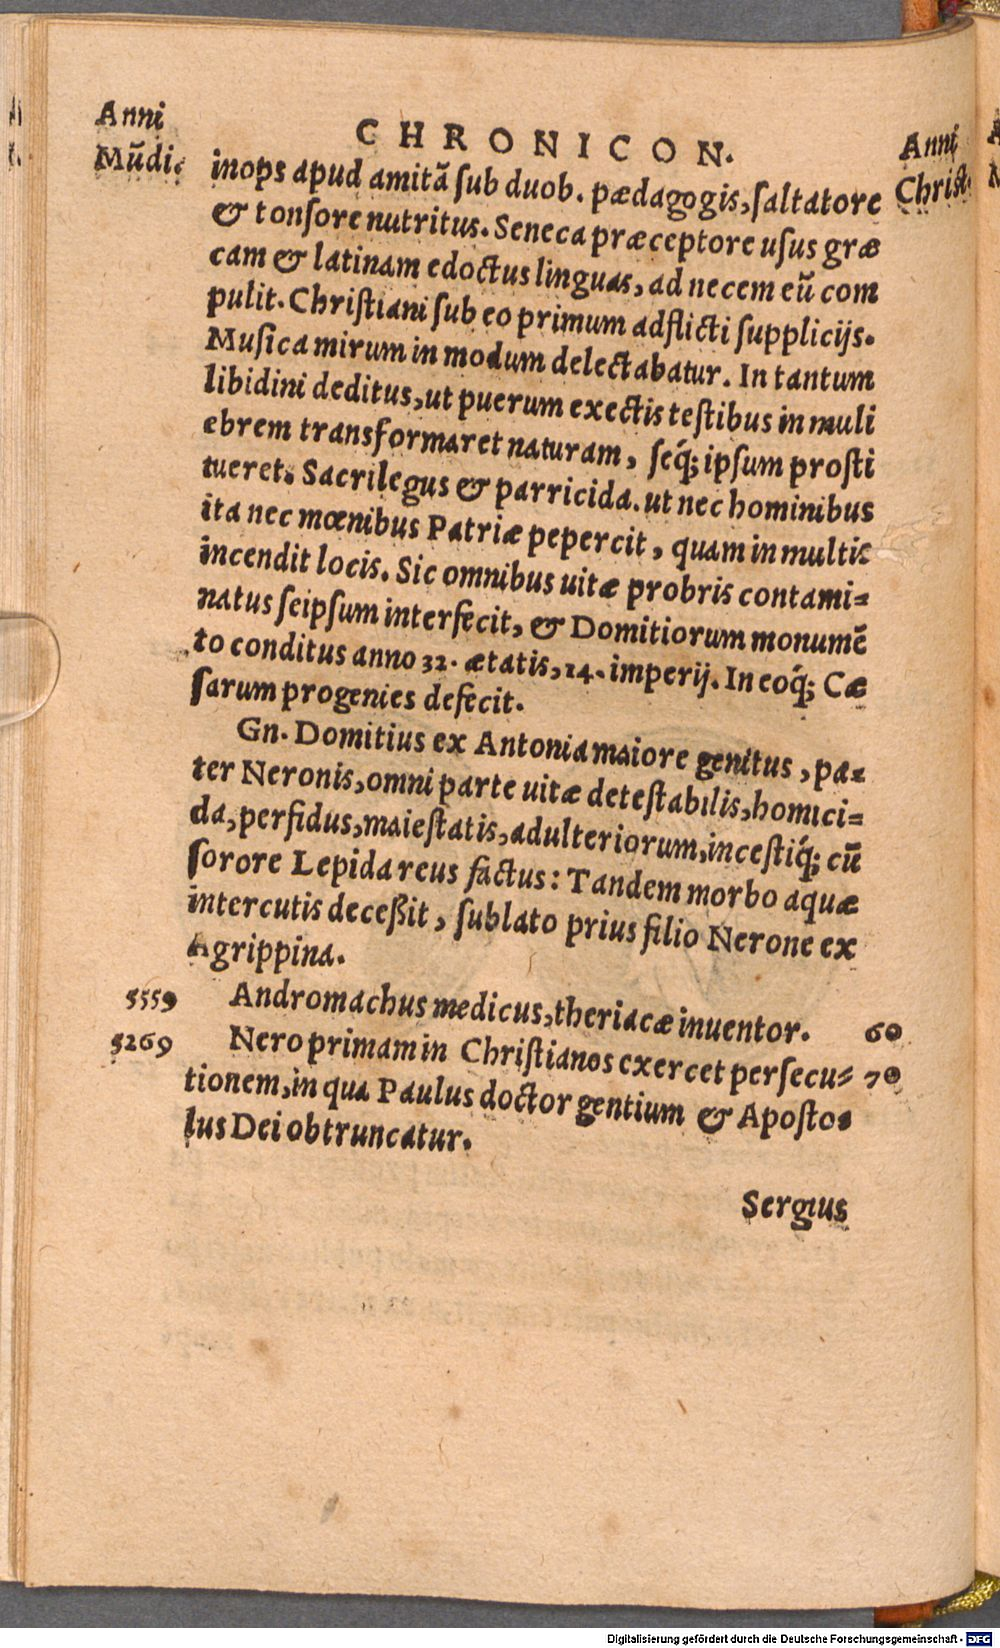 Anni
Mũdi.
CHRONICON.
Anni
Christ
inops apud amitã ſub duob. pædagogis, ſaltatore
& tonſore nutritus. Seneca præceptore uſus græ
cam & latinam edoctus linguas, ad necem eũ com
pulit. Chriſtiani ſub eo primum adflicti ſupplicijs.
Muſica mirum in modum delectabatur. In tantum
libidini deditus, ut puerum exectis teſtibus in muli
ebrem transformaret naturam, ſeq́; ipſum proſti
tueret. Sacrilegus & parricida. ut nec hominibus
ita nec mœnibus Patriæ pepercit, quam in multis
incendit locis. Sic omnibus uitæ probris contami=
natus ſeipſum interfecit, & Domitiorum monumẽ
to conditus anno 32. ætatis, 14. imperij. In eoq́; Cæ
ſarum progenies defecit.
Gn. Domitius ex Antonia maiore genitus, pa=
ter Neronis, omni parte uitæ deteſtabilis, homici=
da, perfidus, maieſtatis, adulteriorum, inceſtiq́; cũ
ſorore Lepida reus factus: Tandem morbo aquæ
intercutis deceßit, ſublato prius filio Nerone ex
Agrippina.
5559 Andromachus medicus, theriacæ inuentor. 60
5269 Nero primam in Chriſtianos exercet perſecu= 70
tionem, in qua Paulus doctor gentium & Apoſto=
lus Dei obtruncatur.
Sergius
Digitalisierung gefördert durch die Deutsche Forschungsgemeinschaft - DFG